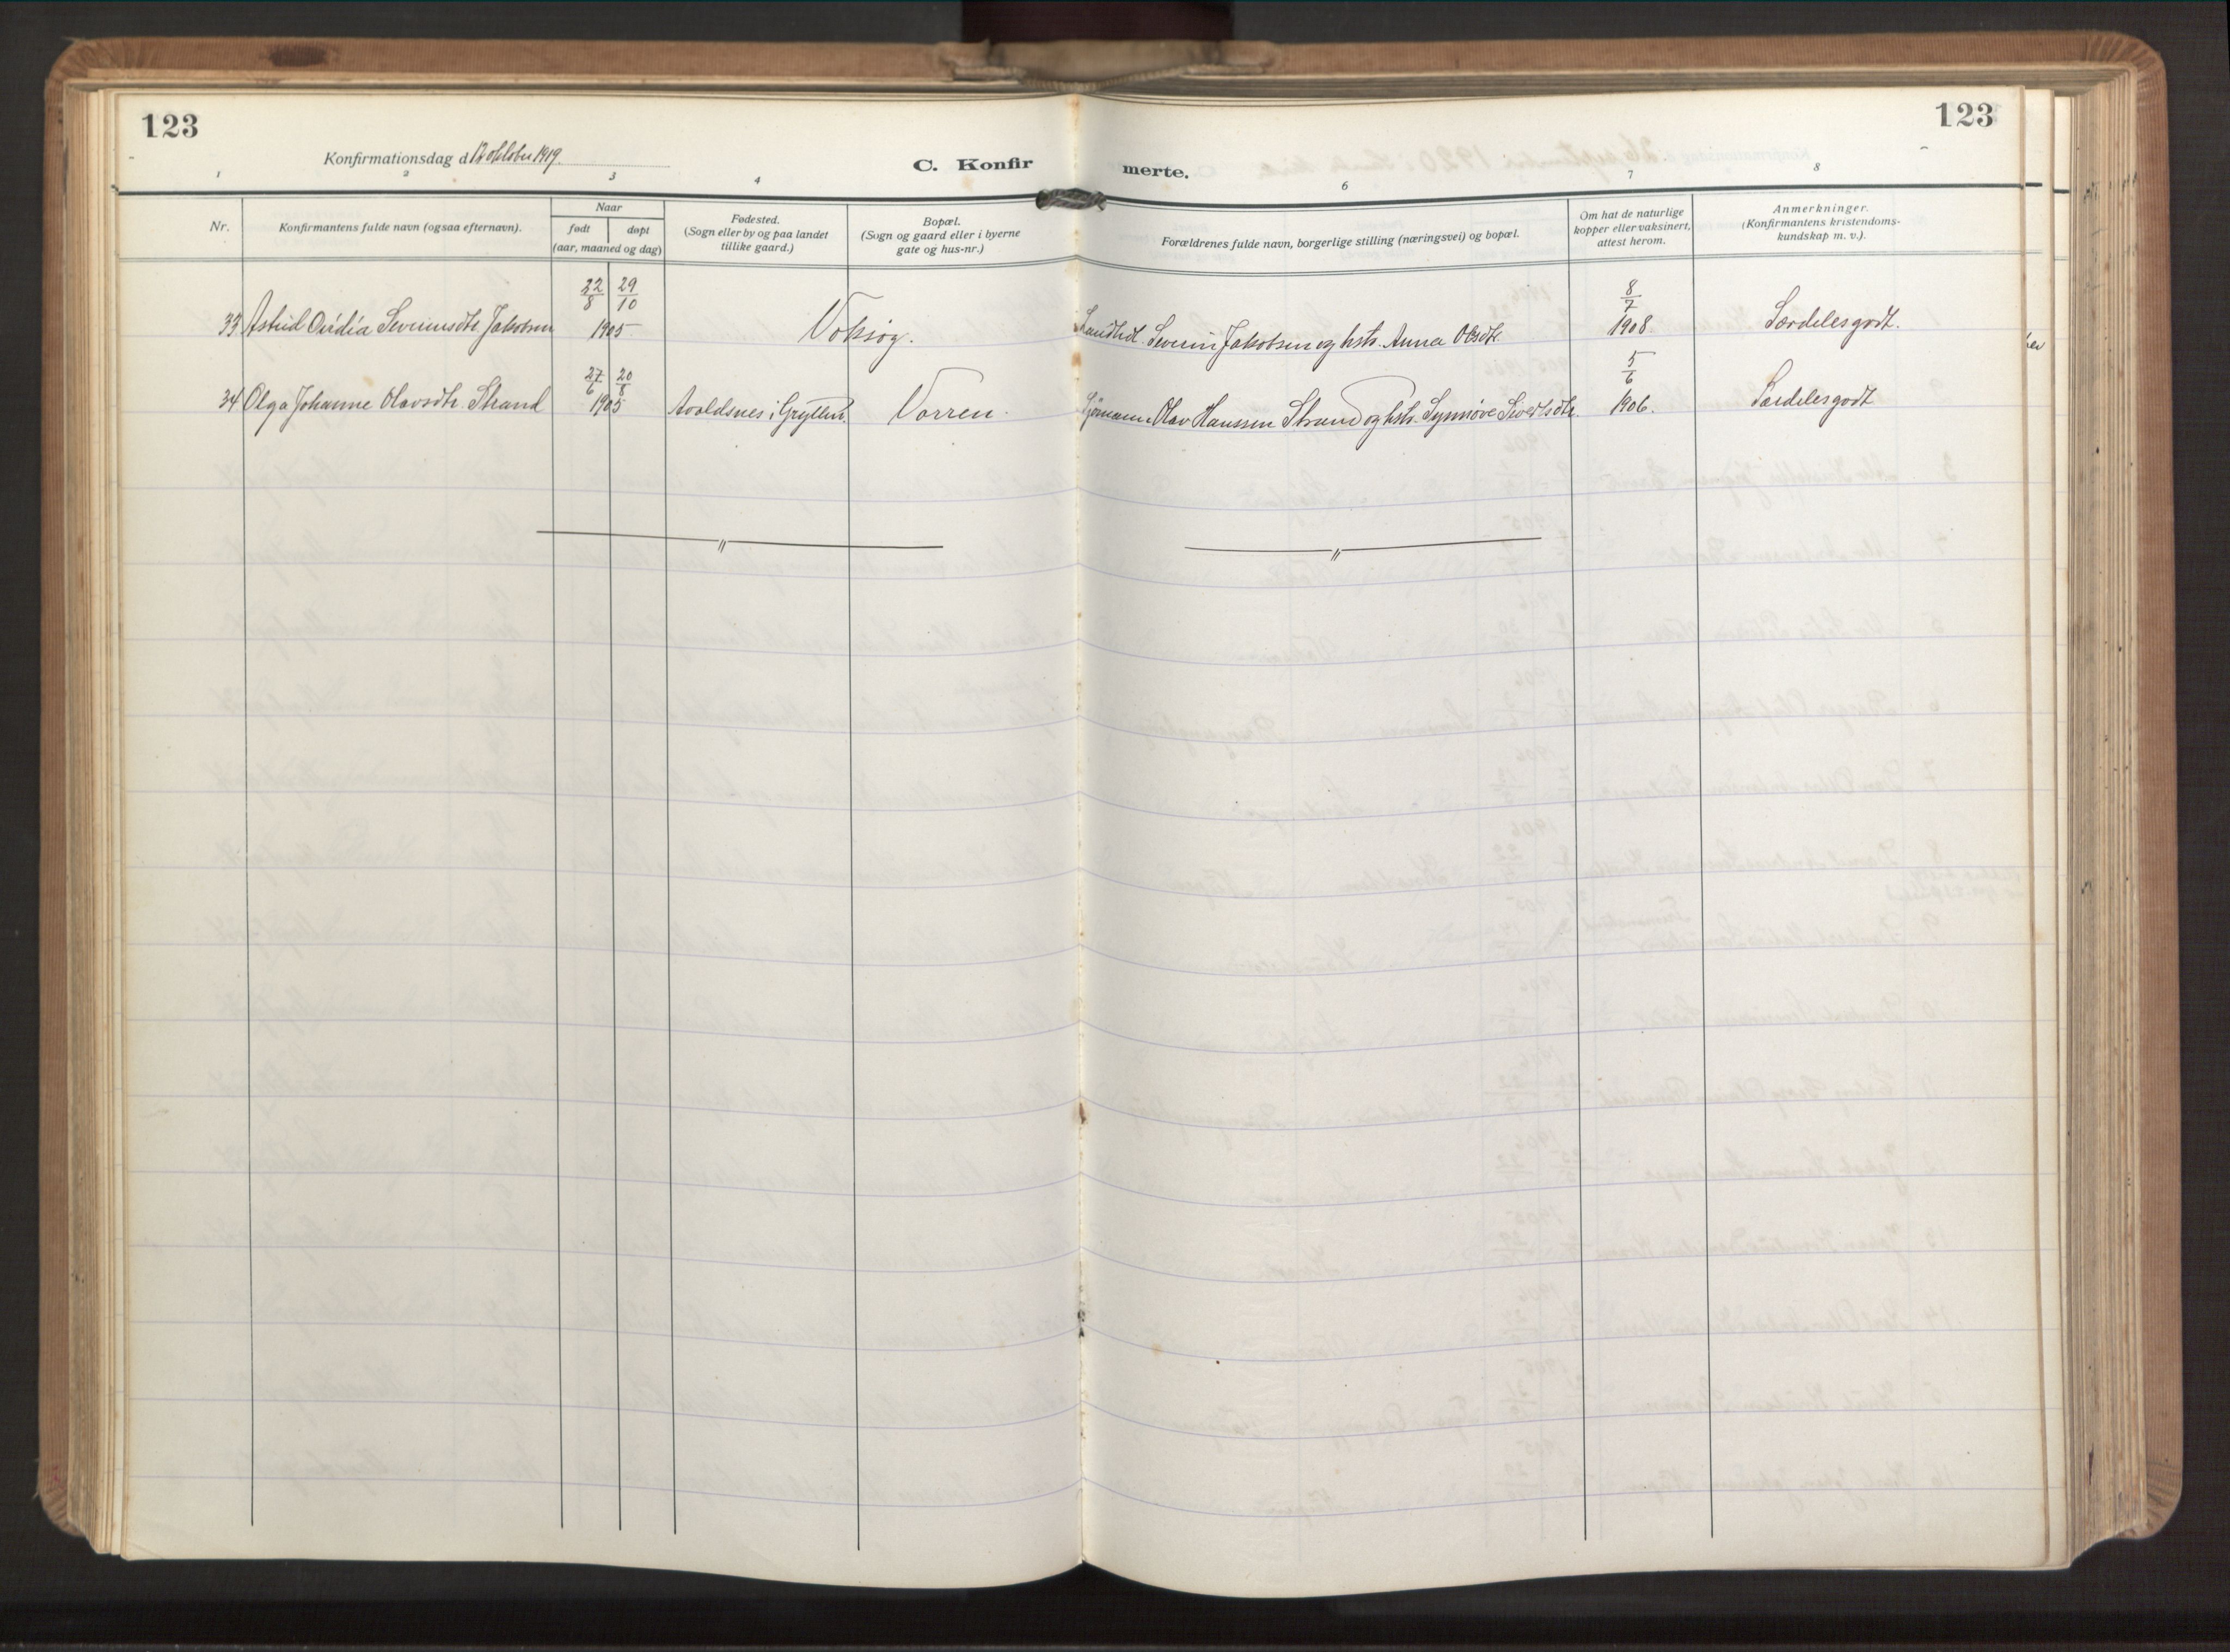 123
123
Konfirmationsdag d. 12 oktober 1919.
C. Konfir merte.
1 2 3 4 6 7 8
Nr.
Konfirmantens fulde navn (ogsaa efternavn).
Naar
født døpt
(aar, maaned og dag)
Fødested.
(Sogn eller by og paa landet
tillike gaard.)
Bopæl.
(Sogn og gaard eller i byerne
gate og hus-nr.)
Forældrenes fulde navn, borgerlige stilling (næringsvei) og bopæl.
Om hat de naturlige
kopper eller vaksinert,
attest herom.
Anmerkninger.
(Konfirmantens kristendoms-
kundskap m. v.).
22/8 29/10 8/7
33 Astrid Ovidia Severinsdtr. Jakobsen 1905 Voksøg. Landhdl. Severin Jakobsen og hstr. Anna Olsdtr. 1908. Særdeles godt.
27/6 20/8 5/6
34 Olga Johanne Olavsdtr. Strand 1905 Avaldsnes i Gryllen. Vorren. Sjømann Olav Hanssen Strand og hstr. Synnøve Sivertsdtr. 1906. Særdeles godt